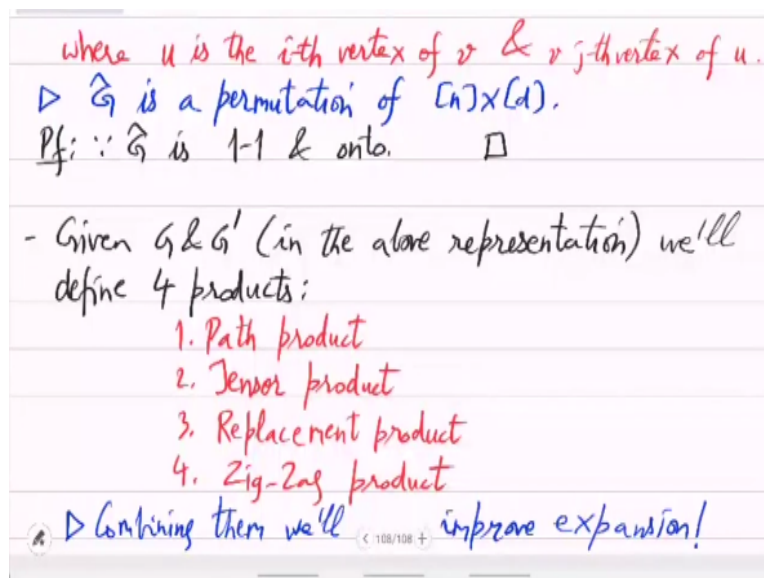 where u is the i-th vertex of v & v j-th vertex of u.
▷ Ĝ is a permutation of [n]x[d].
Pf: ∵ Ĝ is 1-1 & onto. □
- Given G & G' (in the above representation) we'll
define 4 products:
1. Path product
2. Tensor product
3. Replacement product
4. Zig-Zag product
▷ Combining them we'll < 108/108 + improve expansion!